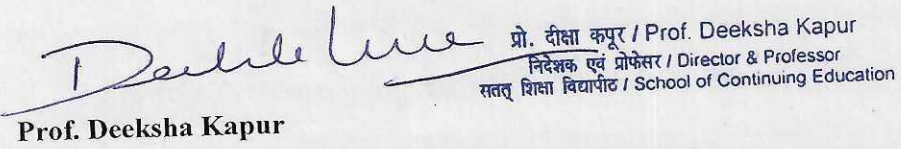 प्रो. दीक्षा कपूर / Prof. Deeksha Kapur
निदेशक एवं प्रोफेसर / Director & Professor
सतत् शिक्षा विद्यापीठ / School of Continuing Education
Prof. Deeksha Kapur